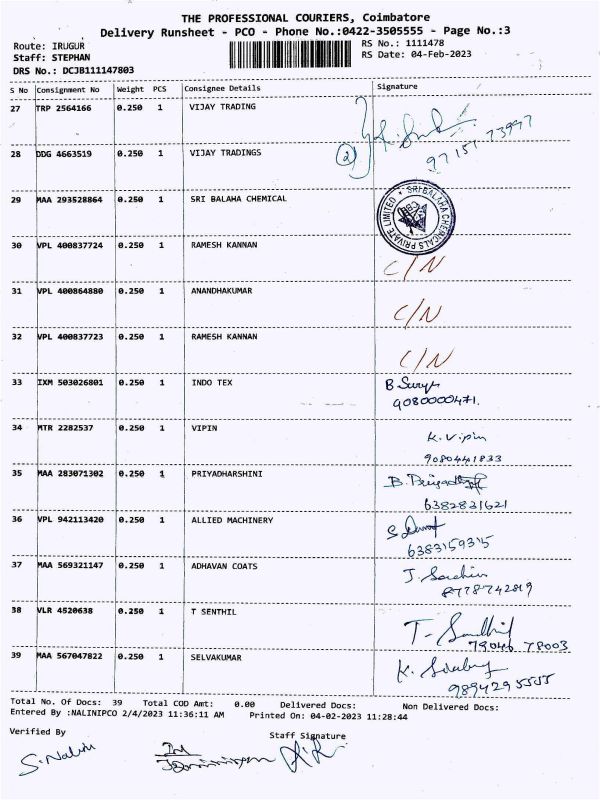 THE PROFESSIONAL COURIERS, Coimbatore
Delivery Runsheet - PCO - Phone No.:0422-3505555 - Page No.:3
Route: IRUGUR RS No.: 1111478
Staff: STEPHAN RS Date: 04-Feb-2023
DRS No.: DCJB111147803
S No Consignment No Weight PCS Consignee Details Signature
27 TRP 2564166 0.250 1 VIJAY TRADING
97157 73997
28 DDG 4663519 0.250 1 VIJAY TRADINGS (2)
29 MAA 293528864 0.250 1 SRI BALAHA CHEMICAL SRI BALAHA CHEMICALS PRIVATE LIMITED CBE
30 VPL 400837724 0.250 1 RAMESH KANNAN C/N
31 VPL 400864880 0.250 1 ANANDHAKUMAR C/N
32 VPL 400837723 0.250 1 RAMESH KANNAN C/N
33 IXM 503026801 0.250 1 INDO TEX B Surya
9080000471.
34 MTR 2282537 0.250 1 VIPIN K. Vipin
9080441833
35 MAA 283071302 0.250 1 PRIYADHARSHINI B.
6382831621
36 VPL 942113420 0.250 1 ALLIED MACHINERY S
6383159315
37 MAA 569321147 0.250 1 ADHAVAN COATS J. Sachin
8778742819
38 VLR 4520638 0.250 1 T SENTHIL T. Senthil
79046 78003
39 MAA 567047822 0.250 1 SELVAKUMAR K.
9894295555
Total No. Of Docs: 39 Total COD Amt: 0.00 Delivered Docs: Non Delivered Docs:
Entered By :NALINIPCO 2/4/2023 11:36:11 AM Printed On: 04-02-2023 11:28:44
Verified By Staff Signature
S. Nalini